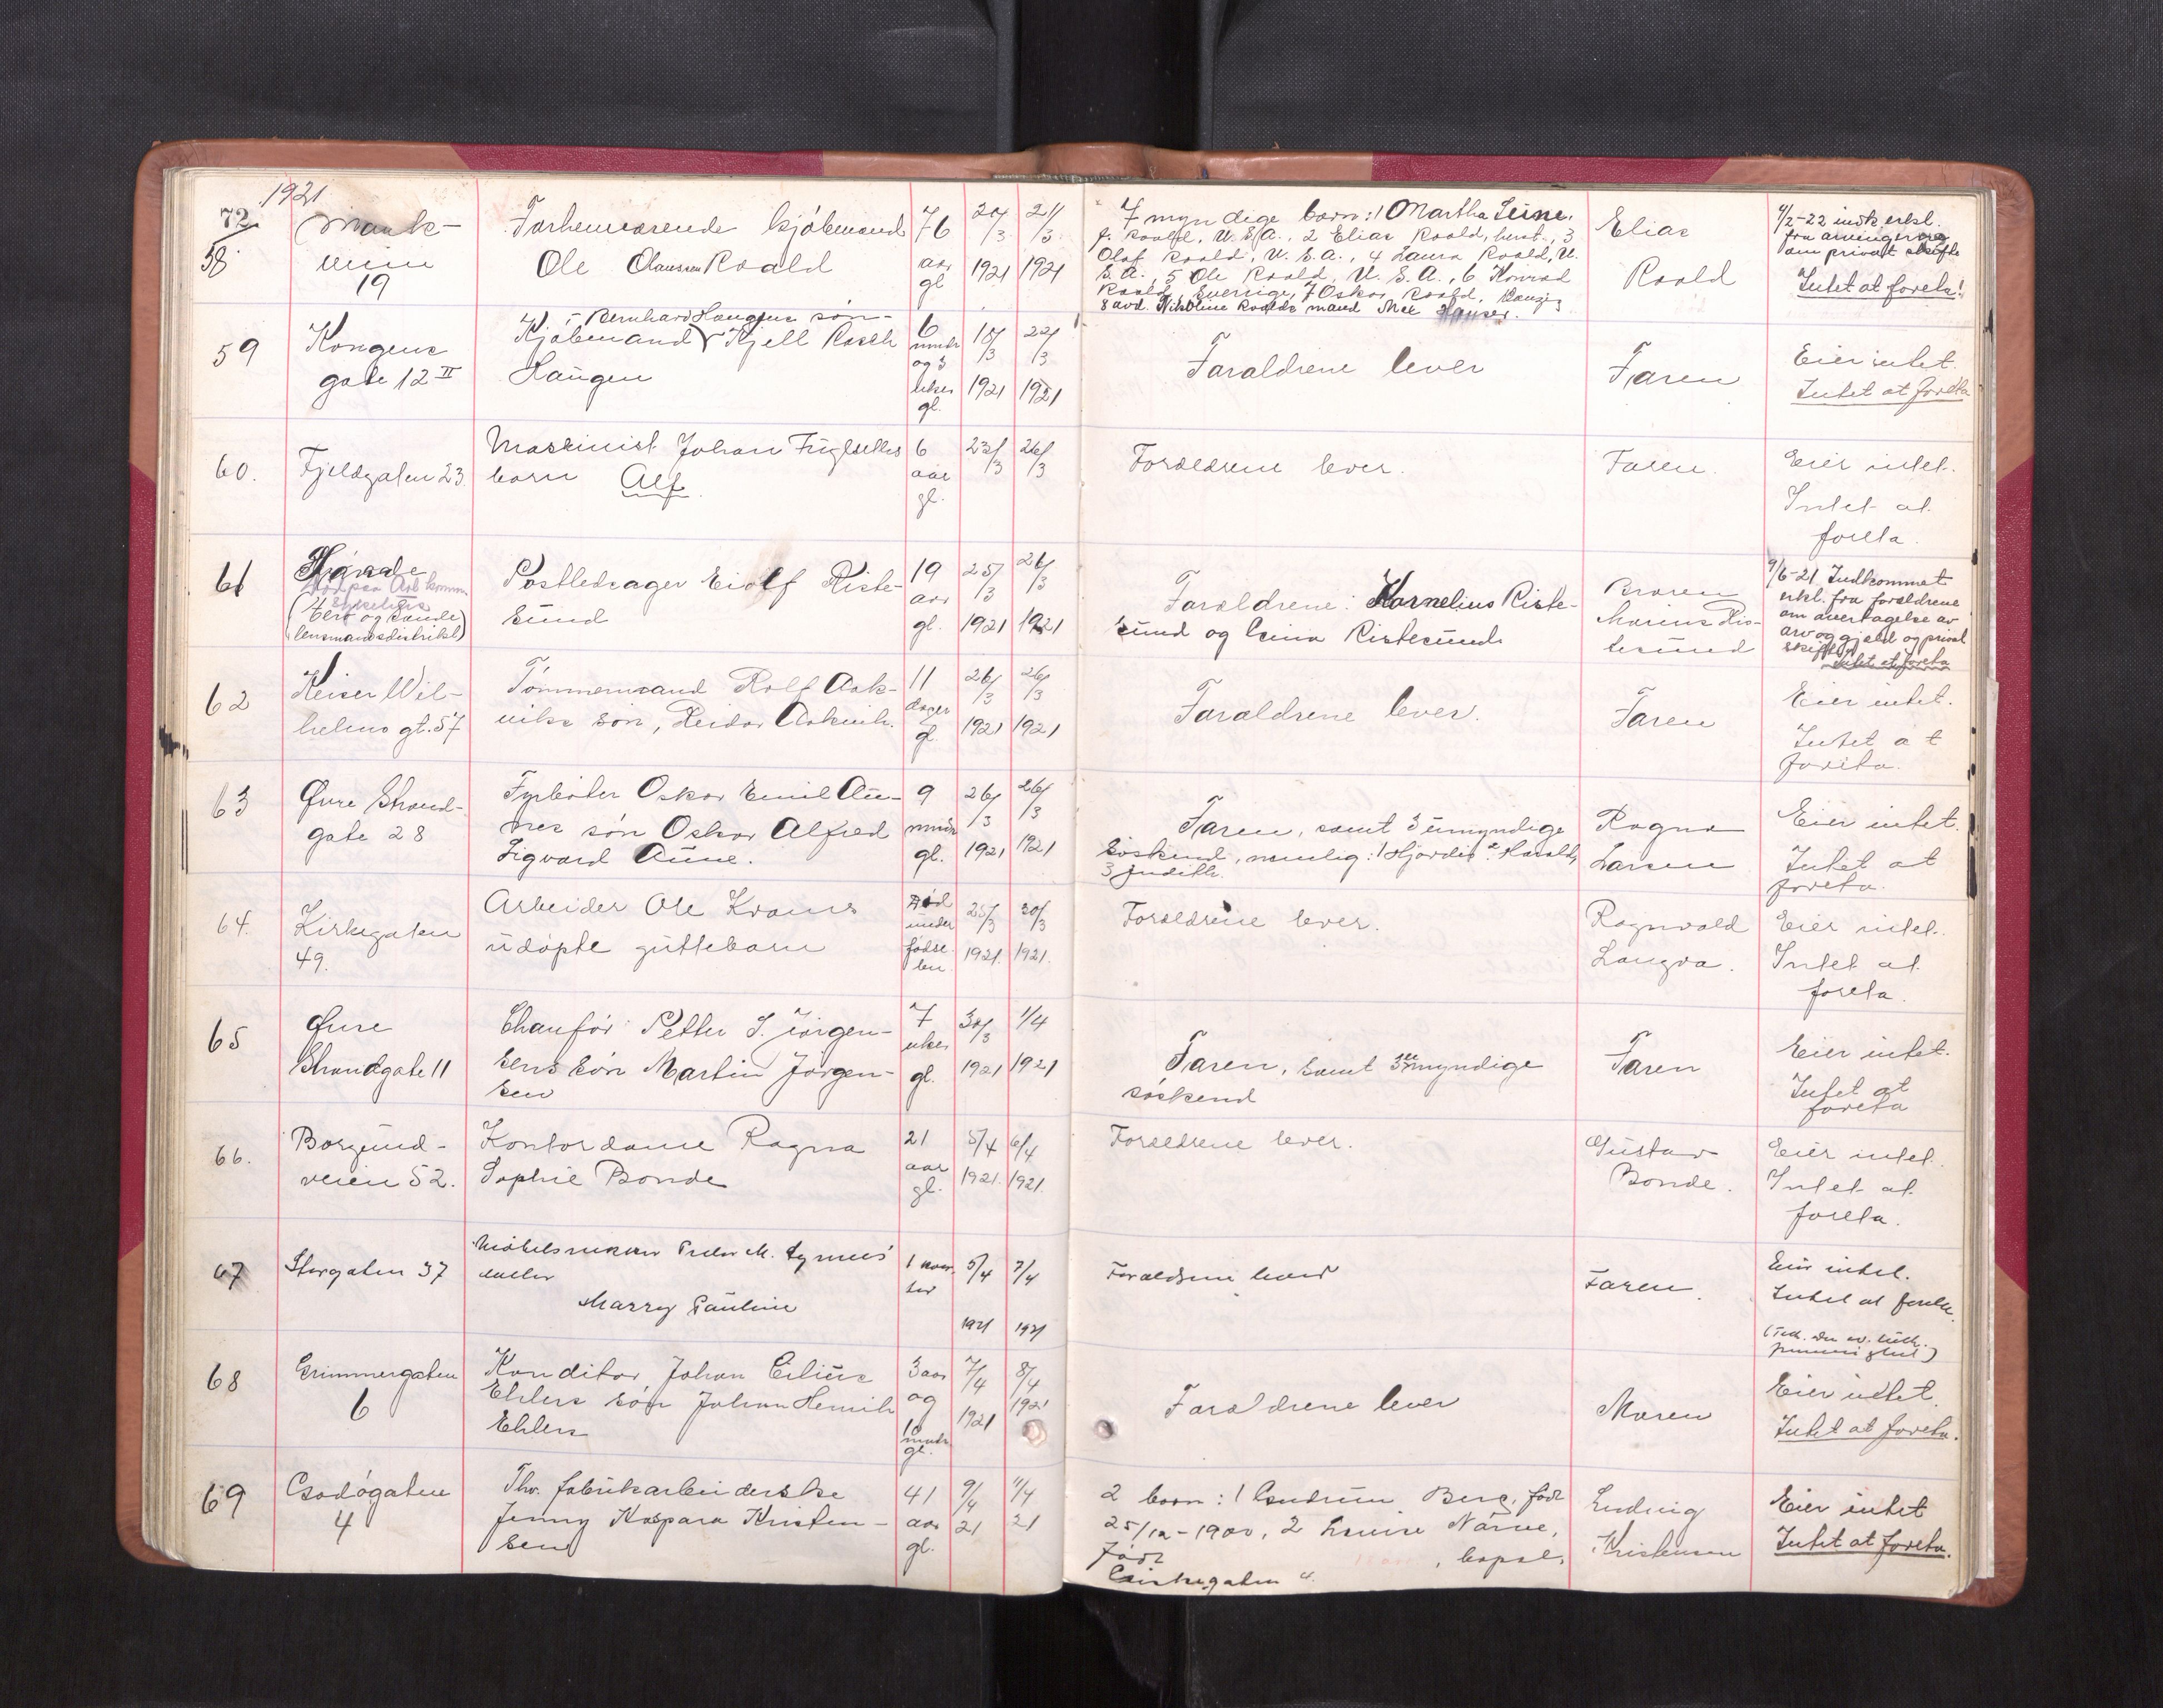 1921
72
58
19
Forhenværende kjøbmand
Ole Olaussen Roald
76
aar
gl
20/3
1921
21/3
1921
7 myndige børn: 1 Martha
f. Roald, U.S.A., 2 Elias Roald, herst., 3
Olaf Roald, U.S.A., 4 Laura Roald, U.
S.A., 5 Ole Roald, U.S.A., 6 Konrad
Roald, Sverige, 7 Oskar Roald,
8 avd. Nikoline Roalds mand
Elias
Roald
4/2-22 indk erkl.
fra arvingerne
om privat skifte
Intet at foreta!
59
Kongens
gate 12 II
- Bernhard Haugens søn -
Kjøbmand Kjell Rasch
Haugen
6
mndr
og 3
uker
gl.
18/3
1921
22/3
1921
Forældrene lever
Faren
Eier intet.
Intet at foreta
60.
Fjeldgaten 23.
Maskinist Johan Fuglseths
barn Alf.
6
aar
gl.
23/3
26/3
Forældrene lever.
Faren.
Eier intet.
Intet at
foreta.
61
(Herø og Sande
lensmandsdistrikt)
Postledsager Eiolf Riste-
sund
19
aar
gl.
25/3
1921
26/3
1921
Forældrene: Kornelius Riste-
sund og Ristesund
Broren
Marius Ris-
tesund
9/6-21 Indkommet
erkl. fra forældrene
om overtagelse av
arv og gjæld og privat
skifte
Intet at foreta
62
Keiser Wil-
helms gt. 57
Tømmermand Rolf Ask-
viks søn, Reidar Askvik.
11
dager
gl
26/3
1921
26/3
1921
Forældrene lever.
Faren
Eier intet.
Intet at
foreta.
63
Øvre Strand-
gate 28
Fyrbøter Oskar Emil Au-
nes søn Oskar Alfred
Sigvard Aune.
9
mndr
gl.
26/3
1921
26/3
1921
Faren, samt 3 umyndige
søskend, nemlig: 1 Hjørdis 2. Harald,
3 Judith.
Ragna
Larsen
Eier intet.
Intet at
foreta.
64.
Kirkegaten
49.
Arbeider Ole Krams
udøpte guttebarn
Død
under
fødse-
len
25/3
1921.
30/3
1921.
Forældrene lever.
Ragnvald
Langva.
Eier intet.
Intet at
foreta.
65
Øvre
Strandgate 11
Chauffør Petter S. Jørgen-
sens søn Martin Jørgen-
sen
7
uker
gl.
30/3
1921
1/4
1921
Faren, samt 3 umyndige
søskend
Faren
Eier intet.
Intet at
foreta
66.
Borgund-
veien 52.
Kontordame Ragna
Sophie Bonde
21
aar
gl.
5/4
1921.
6/4
1921.
Forældrene lever.
Gustav
Bonde.
Eier intet.
Intet at
foreta.
67
Storgaten 37
Møbelsnekker Peder M.
datter
Marry Pauline
1
5/4
1921
7/4
1921
Forældrene lever
Faren.
Eier intet.
Intet at foreta.
68
Grimmergaten
6
Konditor, Johan Eilius
Ehlers søn Johan Henrik
Ehlers
3 aar
og
10
mndr
gl.
7/4
1921
8/4
1921
Forældrene lever
Moren
Eier intet.
Intet at foreta.
69
4
Fhv. fabrikarbeiderske
Jenny Kaspara Kristen-
sen
41
aar
gl.
9/4
21
11/4
21
2 børn: 1 Gudrun Berg, født
25/12-1900, 2 Louise Nærve,
født
, bopæl,
Ludvig
Kristensen
Eier intet
Intet at foreta.